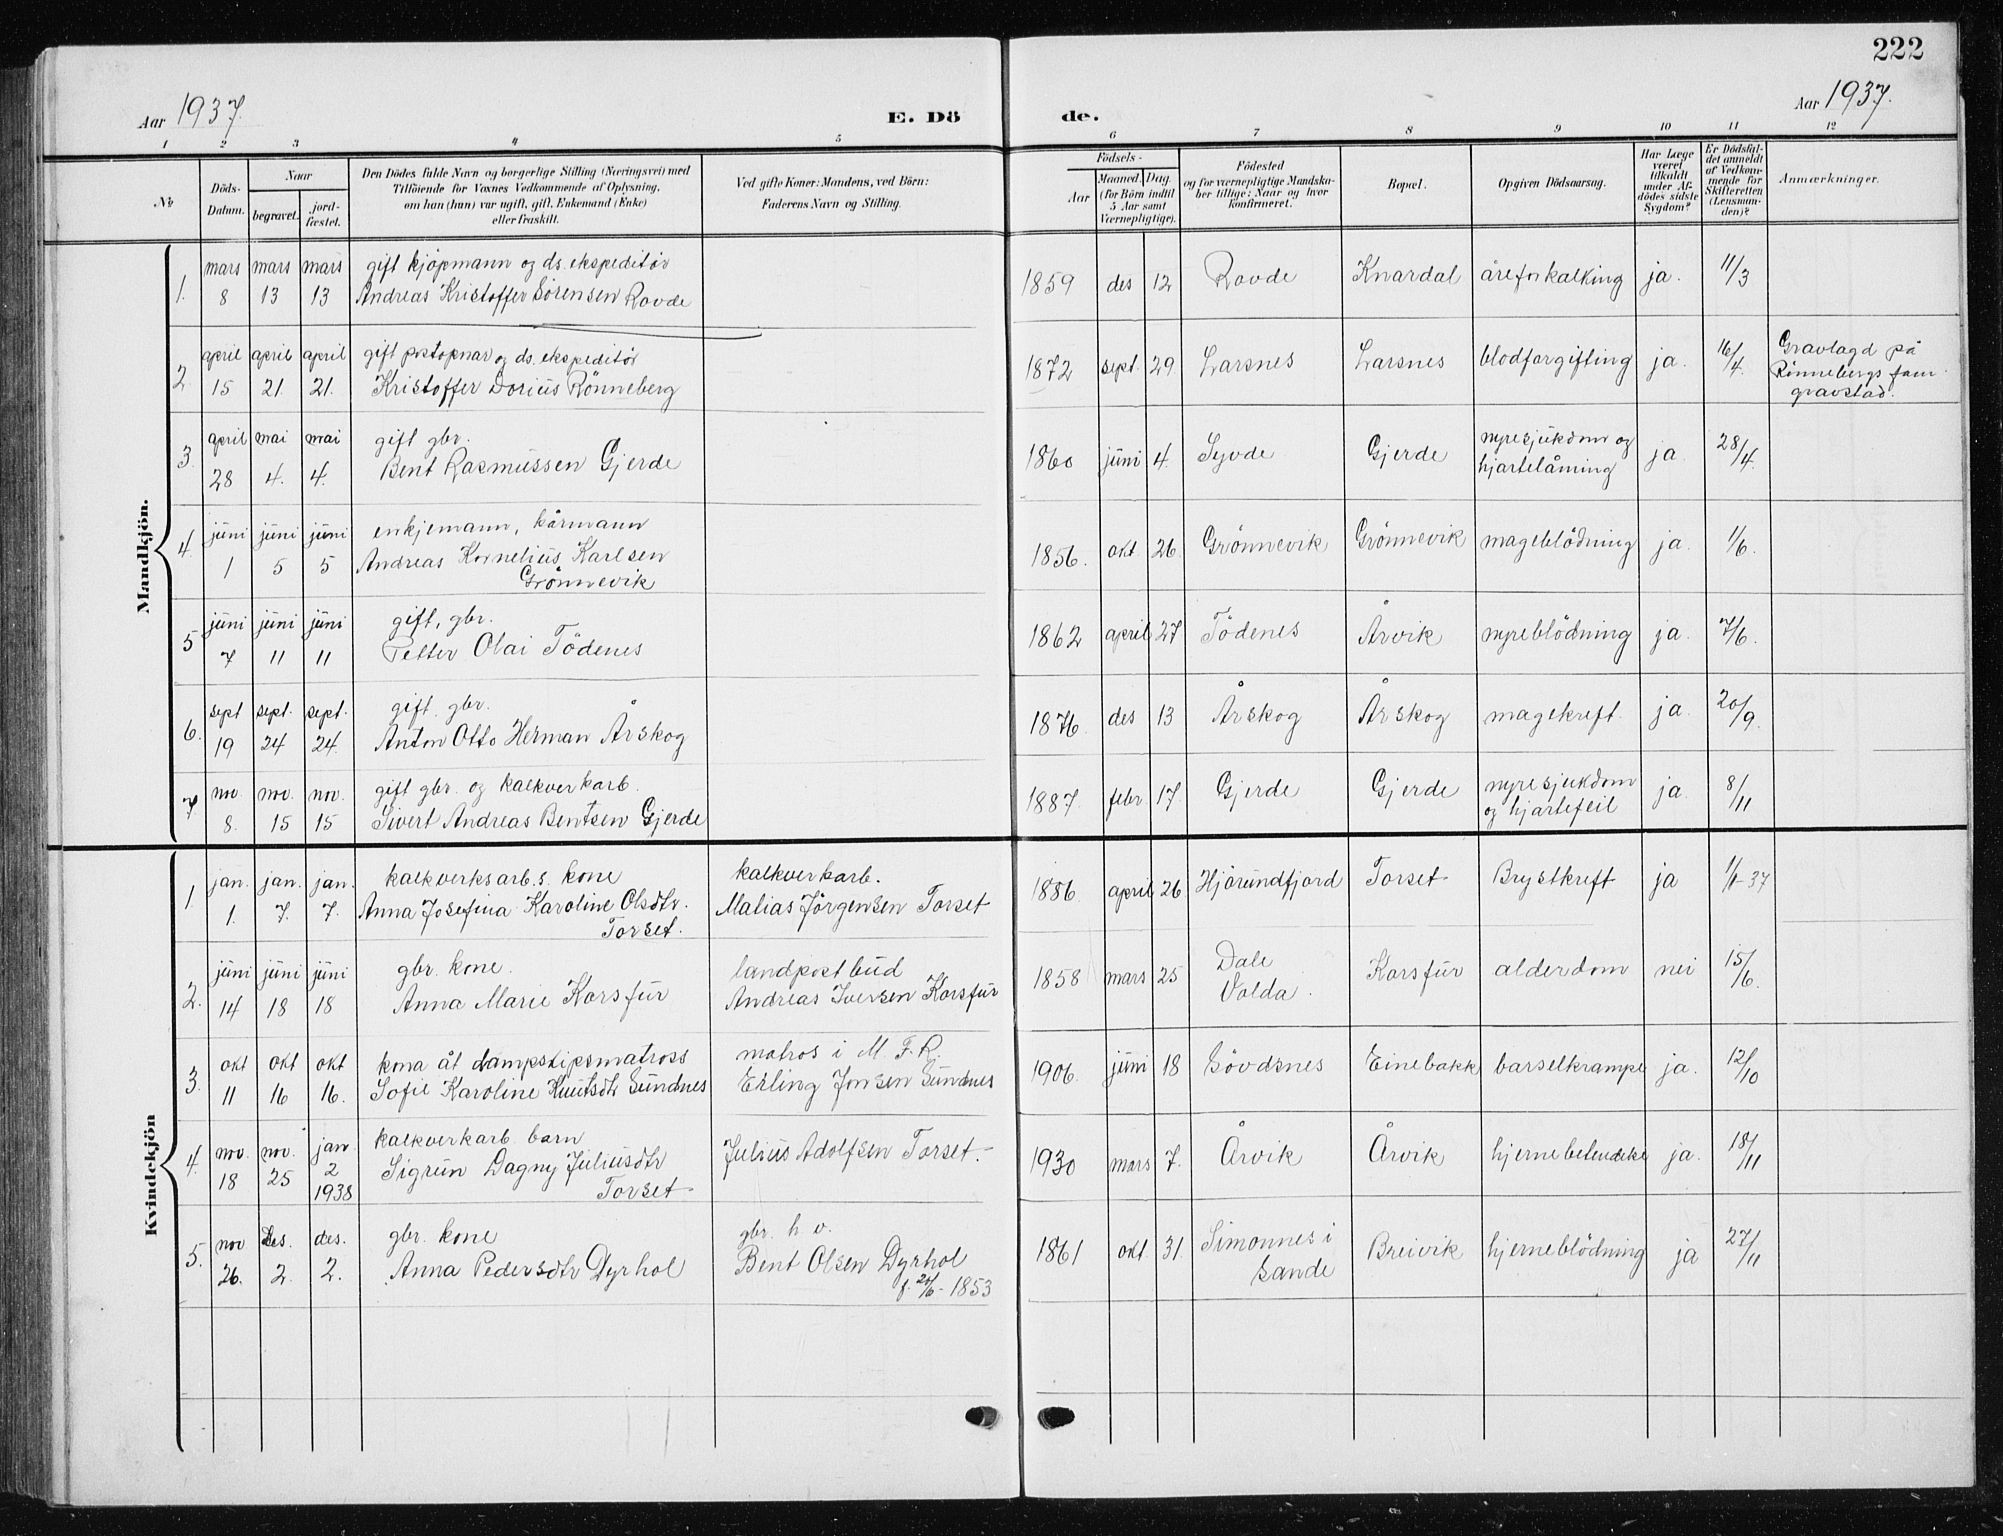 222
Aar 1937.
E. Dö
de.
Aar 1937.
1 2 3 4 5 6 7 8 9 10 11 12
No
Döds-
Datum.
Naar
begravet.
jord-
fæstet.
Den Dödes fulde Navn og borgerlige Stilling (Næringsvei) med
Tilföiende for Voxnes Vedkommende af Oplysning,
om han (hun) var ugift, gift, Enkemand (Enke)
eller fraskilt.
Ved gifte Koner: Mandens, ved Börn:
Faderens Navn og Stilling.
Födsels-
Aar
Maaned. Dag.
(for Börn indtil
5 Aar samt
Værnepligtige).
Födested
og for værnepligtige Mandska-
ber tillige: Naar og hvor
konfirmeret.
Bopæl.
Opgiven Dödsaarsag.
Har Læge
været
tilkaldt
under Af-
dödes sidste
Sygdom?
Er Dödsfal-
det anmeldt
af Vedkom-
mende for
Skifteretten
(Lensman-
den)?
Anmærkninger.
Mandkjön.
mars mars mars gift kjöpmann og ds. ekspeditör
1. 8 13 13 Andreas Kristoffer Sörensen Rovde 1859 des 12 Rovde Knardal åreforkalking ja. 11/3
april april april gift postopnar og ds. ekspeditör
2 15 21. 21. Kristoffer Dorius Rönneberg 1872 sept. 29 Larsnes Larsnes blodforgifting ja. 16/4. Gravlagd på
Rönnebergs fam.
gravstad.
april mai mai gift gbr.
3. 28 4. 4. Bent Rasmussen Gjerde 1860 juni 4. Syvde Gjerde nyresjukdom og
hjartelåming ja. 28/4.
juni juni juni enkjemann, kårmann
4. 1 5 5 Andreas Kornelius Karlsen
Grönnevik 1856. okt. 26. Grönnevik Grönnevik mageblödning ja. 1/6.
juni juni juni gift, gbr.
5 7 11 11 Petter Olai Tödenes 1862 april 27 Tödenes Årvik nyreblödning ja. 7/6.
sept sept. sept. gift. gbr.
6. 19 24 24. Anton Otto Herman Årskog 1876. des 13 Årskog Årskog magekreft. ja. 20/9.
nov. nov. nov. gift gbr. og kalkverkarb.
7. 8. 15 15 Sivert Andreas Bentsen Gjerde 1887. febr. 17. Gjerde Gjerde nyresjukdom
og hjartefeil ja. 8/11
Kvindekjön
jan. jan. jan. kalkverksarb.s. kone kalkverkarb.
1. 1. 7. 7. Anna Josefina Karoline Olsdtr.
Torset. Matias Jörgensen Torset 1886. april 26 Hjörundfjord Torset Brystkreft ja 1/1-37
juni juni juni gbr. kone. landpostbud
2. 14 18 18 Anna Marie Korsfur Andreas Iversen Korsfur 1858 mars 25 Dale
Volda. Korsfur alderdom nei 15/6.
okt okt okt kona åt dampskipsmatross matros i M. F. R.
3. 11 16 16. Sofie Karoline Knutsdtr Sundnes Erling Jonsen Sundnes 1906. juni 18 Sövdsnes Einebakk barselkrampe ja. 12/10
nov. nov. jan. kalkverkarb. barn
4. 18 25 2
1938 Sigrun Dagny Juliusdtr
Torset Julius Adolfsen Torset. 1930 mars 7. Årvik Årvik ja. 18/11
nov des. des. gbr. kone gbr. h v.
5. 26. 2. 2. Anna Pedersdtr Dyrhol Bent Olsen Dyrhol
f. 20/6-1853 1861 okt. 31. Simonnes i
Sande Breivik hjerneblödning ja 27/11